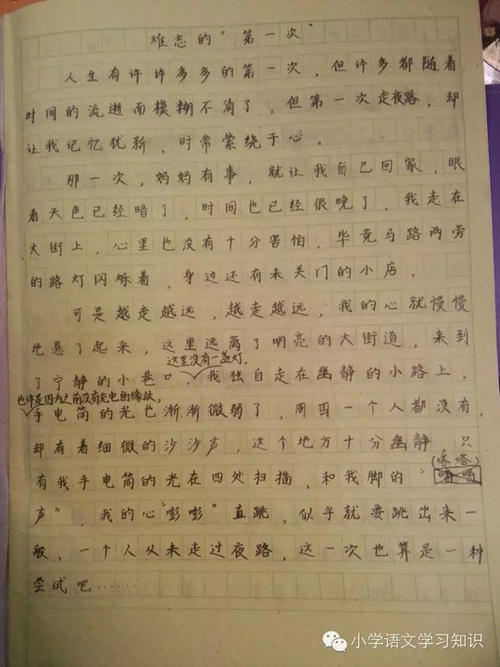 难忘的"第一次"
人生有许许多多的第一次，但许多都随着
时间的流逝而模糊不清了，但第一次走夜路，却
让我记忆犹新，时常萦绕于心。
那一次，妈妈有事，就让我自己回家，眼
看天色已经暗了，时间也已经很晚了，我走在
大街上，心里也没有十分害怕，毕竟马路两旁
的路灯闪烁着，身边还有未关门的小店。
可是越走越远，越走越远，我的心就慢慢
地悬了起来，这里远离了明亮的大街道，来到
这里没有一盏灯。
了宁静的小巷口，我独自走在幽静的小路上，
也许是因为之前没有充电的缘故，
手电筒的光也渐渐微弱了，周围一个人都没有，
却有着细微的沙沙声，这个地方十分幽静，只
有我手电筒的光在四处扫描，和我脚的"
声"，我的心"嘭嘭"直跳，似乎就要跳出来一
般，一个人从未走过夜路，这一次也算是一种
尝试吧……
小学语文学习知识